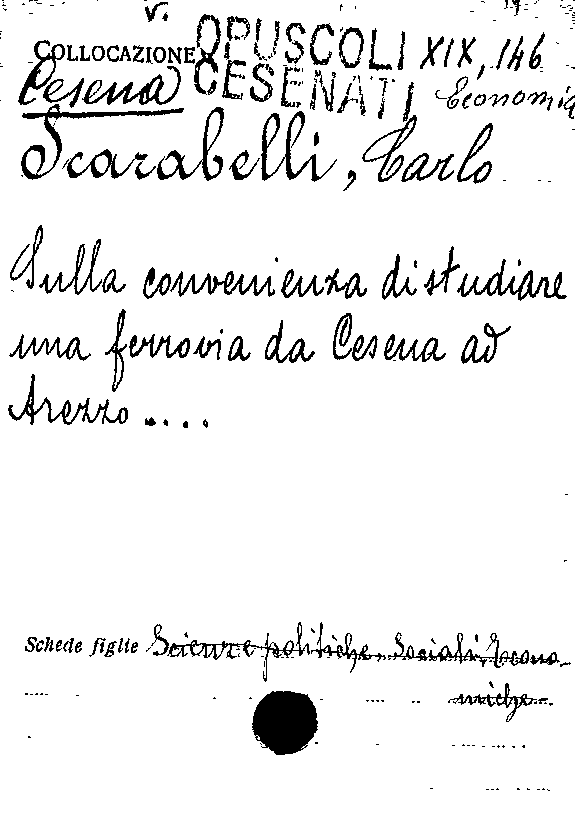 v.
COLLOCAZIONE OPUSCOLI XIX, 146
Cesena CESENATI Economia
Scarabelli, Carlo
Sulla convenienza di studiare
una ferrovia da Cesena ad
Arezzo ....
Schede figlie Scienze politiche, Sociali, Econo-
miche